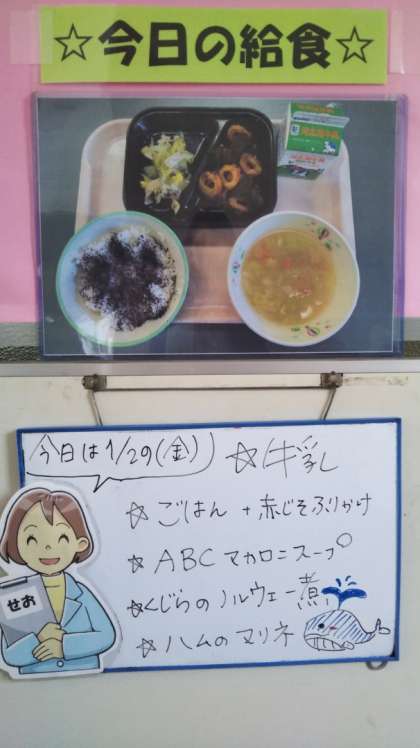 ☆今日の給食☆
今日は1/29(金)
☆牛乳
☆ごはん + 赤じそふりかけ
☆ABCマカロニスープ
☆くじらのノルウェー煮
☆ハムのマリネ
せお